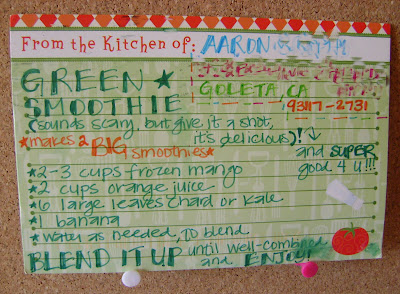 From the Kitchen of: AARON
GREEN ★
SMOOTHIE
GOLETA, CA
93117-2731
(sounds scary, but give it a shot,
it's delicious)!
★makes 2 BIG smoothies★
and SUPER
good 4 u!!!
★2-3 cups frozen mango
★2 cups orange juice
★6 large leaves chard or kale
★1 banana
★water as needed, TO blend
BLEND IT UP until well-combined
and ENJOY!